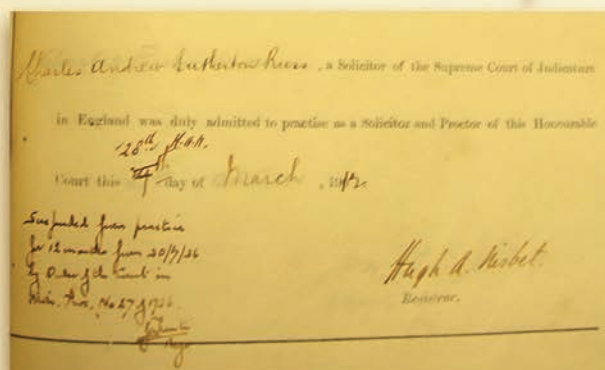 Charles Andrew Lutherton Russ, a Solicitor of the Supreme Court of Judicature
in England was duly admitted to practise as a Solicitor and Proctor of this Honourable
28th H.A.N.
Court this day of March, 1912.
Suspended from practice
for 12 months from 20/7/26
by Order of the Court in
Misc. Pros. No 27 of 1926.
Hugh A. Nisbet.
Registrar.